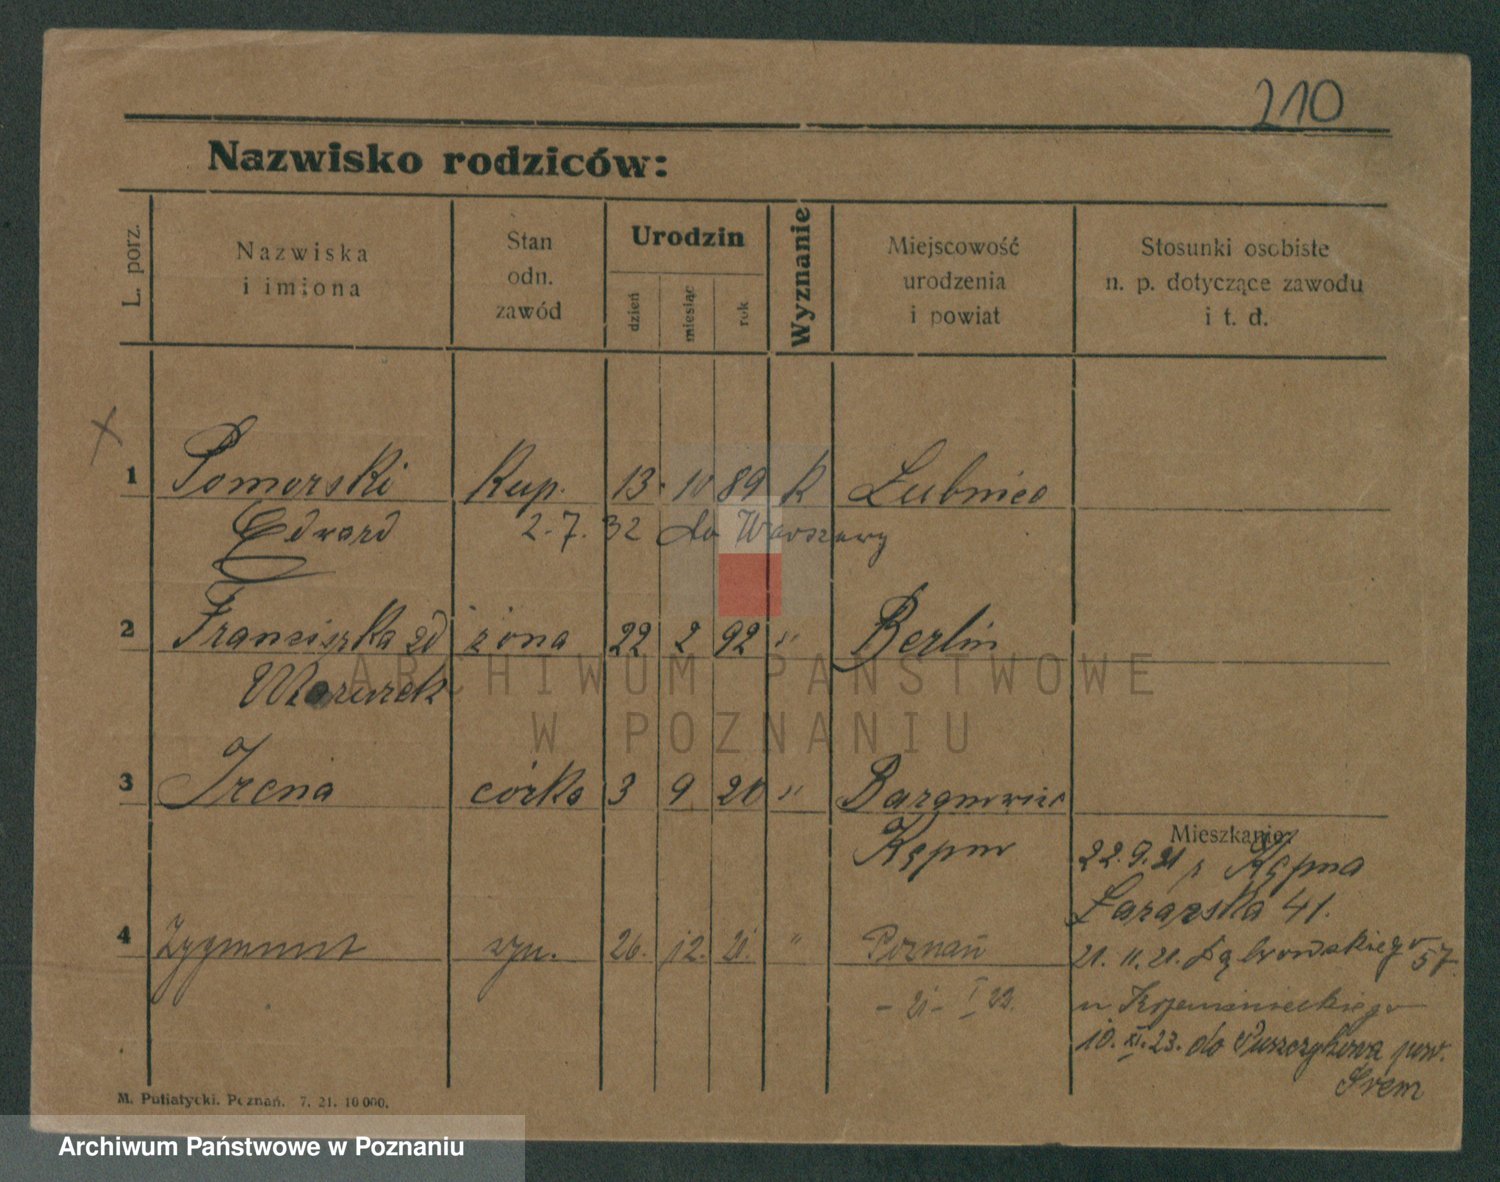 210
Nazwisko rodziców:
L. porz.
Nazwiska
i imiona
Stan
odn.
zawód
Urodzin
dzień
miesiąc
rok
Wyznanie
Miejscowość
urodzenia
i powiat
Stosunki osobiste
n. p. dotyczące zawodu
i t. d.
x
1 Pomorski Kup. 13. 10 89 k
Edward 2.7.32 do Warszawy
2 Franciszka zd żona 22 2 92 " Berlin
3 Irena córka 3 9 20 "
Mieszkanie:
Kępno 22.9.21 z Kępna
41.
4 Zygmunt syn. 26. 12. 21. " Poznań 21.11.21. Dąbrowskiego 57
10.XI.23. do Puszczykowa pow.
Śrem
M. Putiatycki. Poznań. 7. 21. 10 000.
ARCHIWUM PAŃSTWOWE
W POZNANIU
Archiwum Państwowe w Poznaniu